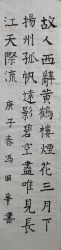 故人西辭黃鶴樓煙花三月下
揚州孤帆遠影碧空盡唯見長
江天際流 庚子春馮田華書